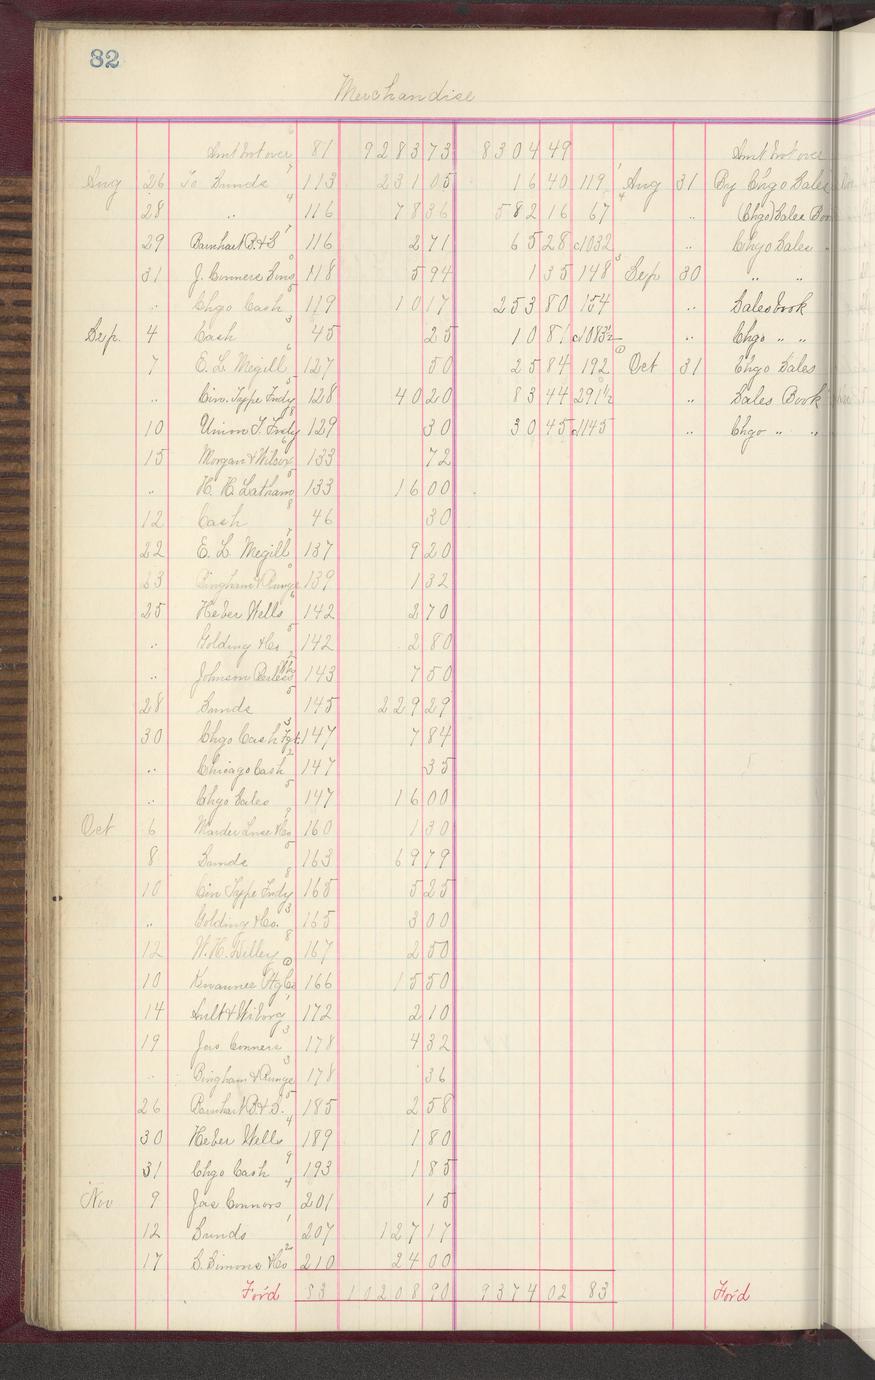 82
Merchandise
Amt brot over 81 9283 73 8304 49 Amt brot over
Aug 26 To Sunds 113 231 05 16 40 119 Aug 31 By Chgo Sales
28 " 116 78 36 582 16 67 " (Chgo) Sales Boo
29 Barnhart B. & S 116 2 71 65 28 c1032 " Chgo Sales "
31 J. Conners Sons 118 5 94 1 35 148 Sep 30 " "
" Chgo Cash 119 10 17 253 80 154 " Sales book
Sep. 4 Cash 45 25 10 81 c1083½ " Chgo " "
7 E. L. Megill 127 50 25 84 192 Oct 31 Chgo Sales
" Cin. Type Fndy 128 40 20 83 44 291½ " Sales Book
10 Union T. Fndy 129 30 30 45 c1145 " Chgo " "
15 Morgan & Wilcox 133 72
" H. H. Latham 133 16 00
12 Cash 46 30
22 E. L. Megill 137 9 20
23 Bingham & Runge 139 1 32
25 Heber Wells 142 2 70
" Golding & Co 142 2 80
" Johnson Peerless 143 7 50
28 Sunds 145 229 29
30 Chgo Cash Fgt 147 7 84
" Chicago Cash 147 35
" Chgo Sales 147 16 00
Oct 6 Marder Luse & Co 160 1 30
8 Sunds 163 69 79
10 Cin Type Fndy 165 5 25
" Golding & Co. 165 3 00
12 W. H. 167 2 50
10 Kewaunee Mfg Co 166 15 50
14 Ault & Wiborg 172 2 10
19 Jas. Conners 178 4 32
" Bingham & Runge 178 36
26 Barnhart B. & S. 185 2 58
30 Heber Wells 189 1 80
31 Chgo Cash 193 1 85
Nov 9 Jas Connors 201 15
12 Sunds 207 127 17
17 S. Simons & Co 210 24 00
For'd 83 10208 90 9374 02 83 For'd